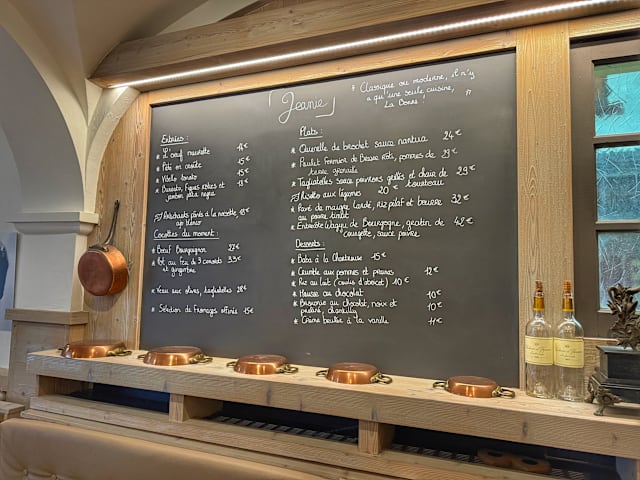 Jeanie
* Classique ou moderne, il n'y
a qu'une seule cuisine,
La Bonne ! *
Entrées :
* L'œuf meurette 14€
* Pâté en croûte 15€
* Vitello tonato 15€
* Burrata, figues rôties et 13€
jambon pata negra
Artichauts poêlés à la noisette, 18€
Cocottes du moment :
* Bœuf Bourguignon 27€
* Pot au feu de 3 canards 33€
et gingembre
* Veau aux olives, tagliatelles 28€
* Sélection de fromages affinés 15€
Plats :
* Quenelle de brochet sauce nantua 24€
* Poulet Fermier de Beaure rôti, pommes de 29€
terre grenaille
* Tagliatelles sauce poivrons grillés et chair de 29€
tourteau
Risotto aux légumes 20€
* Pavé de maigre lardé, riz pilaf et beurre 32€
au poivre timut
* Entrecôte Wagyu de Bourgogne, gratin de 42€
courgette, sauce poivre
Desserts :
* Baba à la Chartreuse 15€
* Crumble aux pommes et prunes 12€
* Riz au lait (coulis d'abricot) 10€
* Mousse au chocolat 10€
* Brownie au chocolat, noix et 10€
praliné, chantilly
* Crème brulée à la vanille 11€